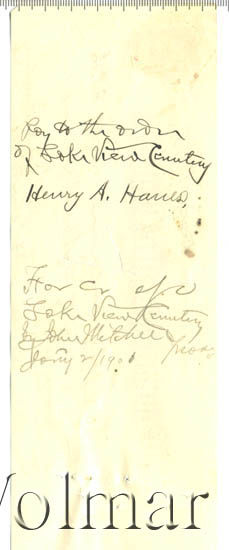 Pay to the order
of Lake View Cemetery
Henry A. Hanes.
For Cr a/c
Lake View Cemetery
By John Mitchell
Jany 2/1901
Volmar